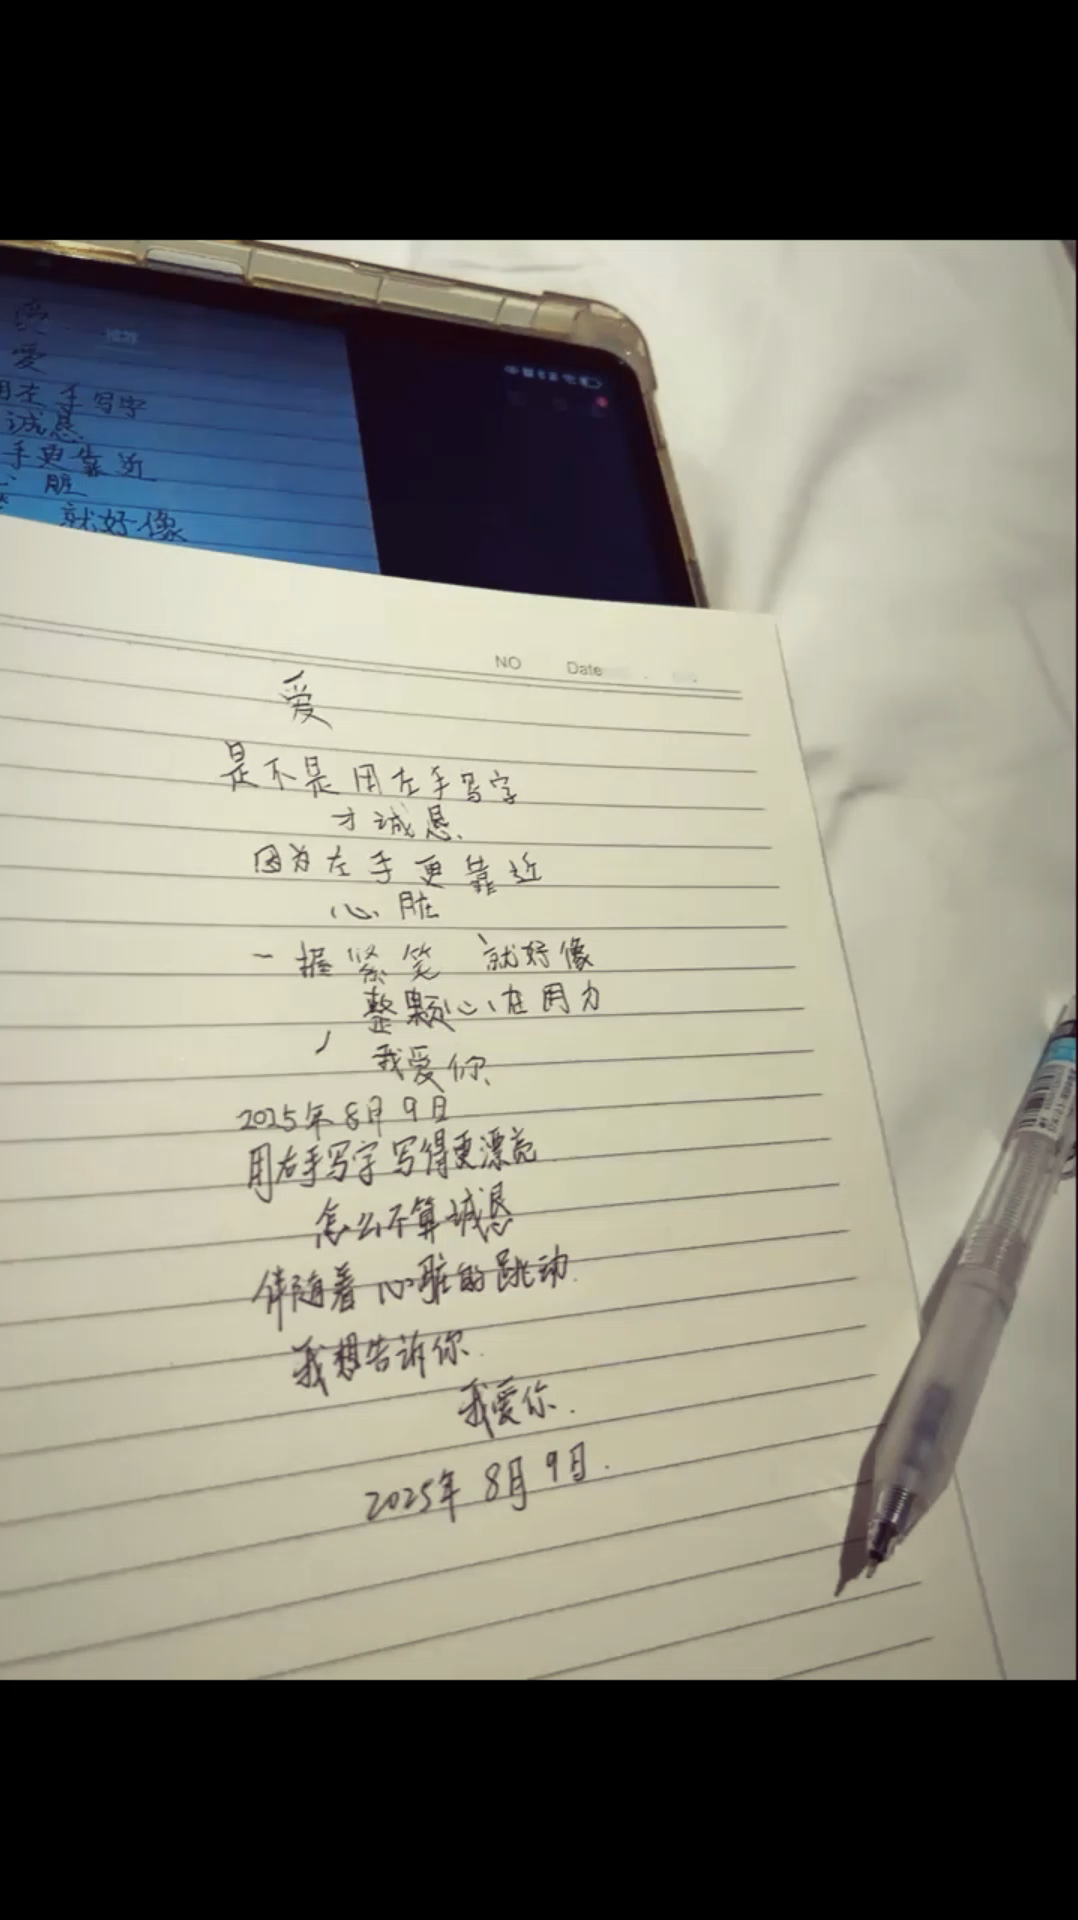 爱
用左手写字
诚恳
手更靠近
脏
就好像
NO
Date
爱
是不是用左手写字
才诚恳
因为左手更靠近
心脏
一握紧笔 就好像
整颗心在用力
我爱你
2025年8月9日
用右手写字写得更漂亮
怎么不算诚恳
伴随着心脏的跳动
我想告诉你
我爱你.
2025年8月9日.